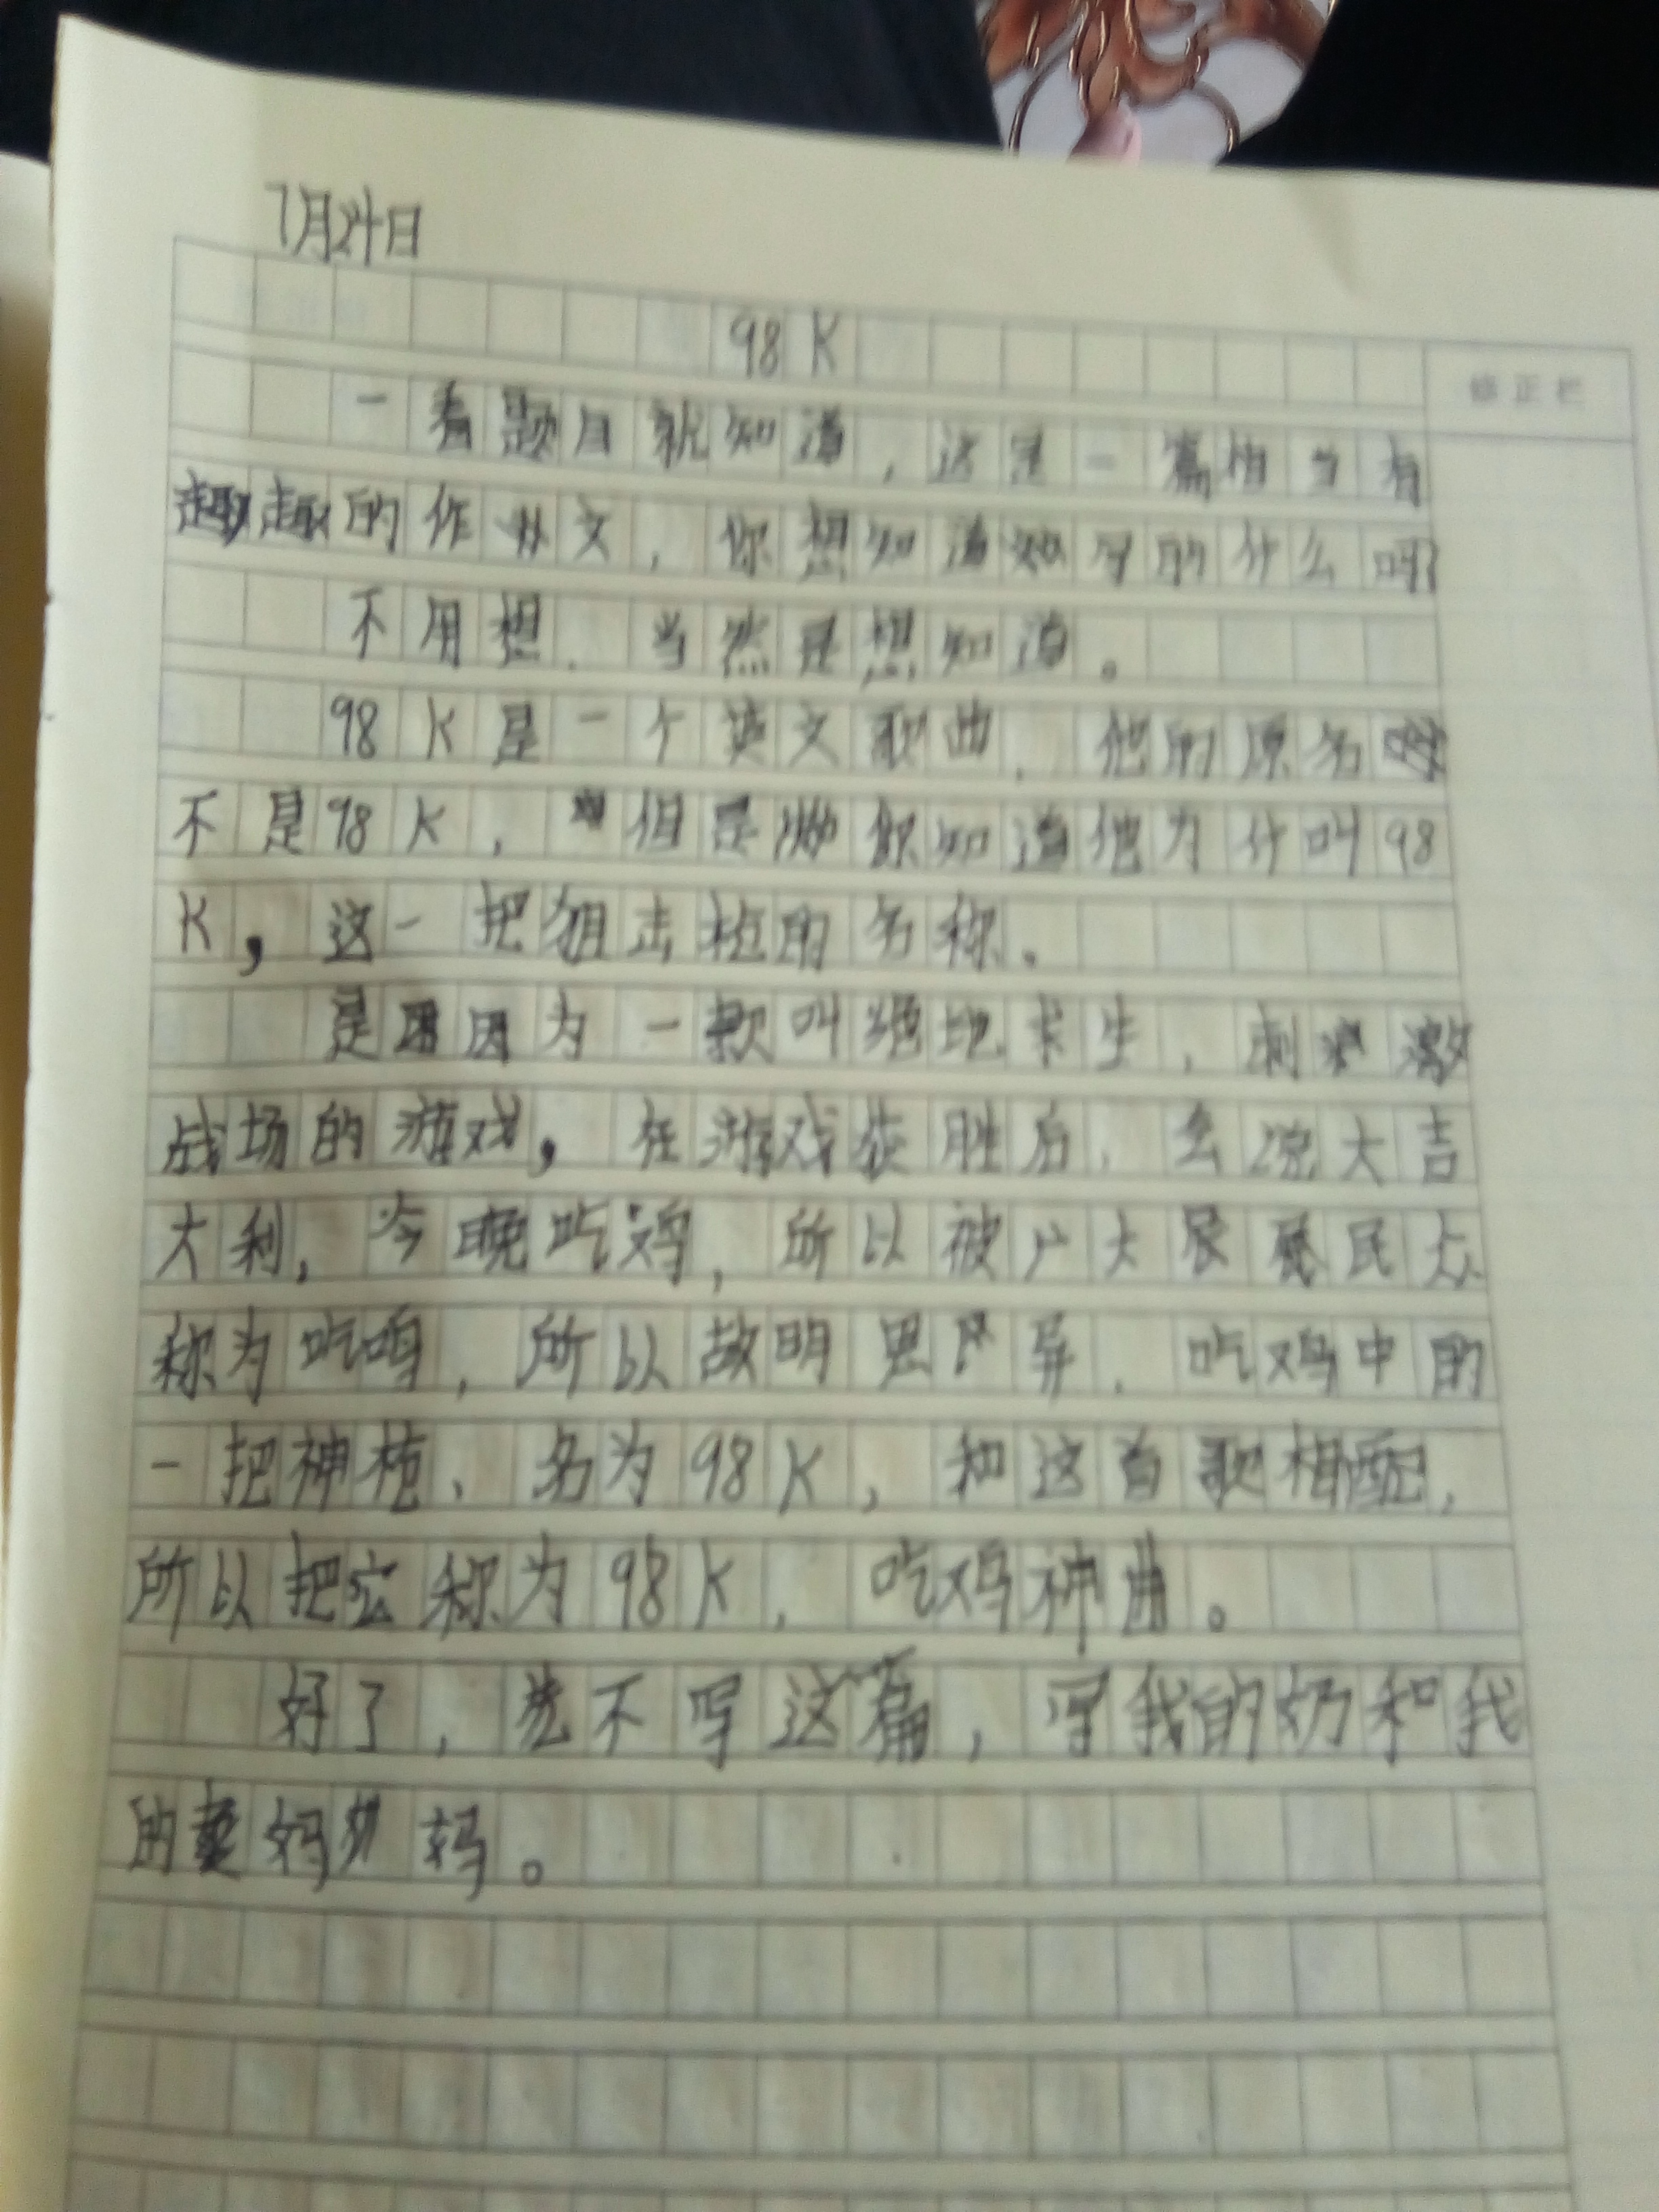 7月24日
98K
修正栏
一看题目就知道，这是一篇相当有
趣的作文，你想知道写的什么吗？
不用想，当然是想知道。
98K是一个英文歌曲，他的原名
不是98K，但是你知道他为什叫98
K，这一把狙击枪的名称。
是因为一款叫绝地求生，刺激
战场的游戏，在游戏获胜后，会大吉
大利，今晚吃鸡，所以被广大民众
称为吃鸣，所以故明思，吃鸡中的
一把神枪，名为98K，和这首歌相配，
所以把它称为98K，吃鸡神曲。
好了，先不写这篇，写我的奶和我
的妈妈。